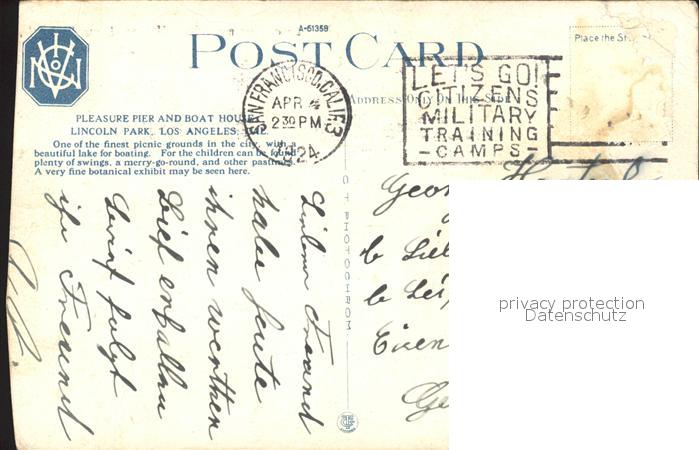 A-61359
POST CARD
Place the St
ADDRESS ONLY ON THIS SIDE
SAN FRANCISCO, CALIF. 3
APR 4
2 30 PM
1924
LET'S GO!
CITIZENS
MILITARY
TRAINING
-CAMPS-
PLEASURE PIER AND BOAT HOUSE
LINCOLN PARK, LOS ANGELES,
One of the finest picnic grounds in the city, with
beautiful lake for boating. For the children can be found
plenty of swings, a merry-go-round, and other pastimes.
A very fine botanical exhibit may be seen here.
Lieber Freund
habe heute
ihren werthen
Brief erhalten
Brief folgt
ihr Freund
PHOTOCHROM
Geor
Eisen
Ge
privacy protection
Datenschutz